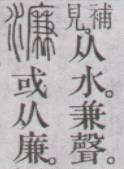 補
見
从水。兼聲。
濂或从廉。